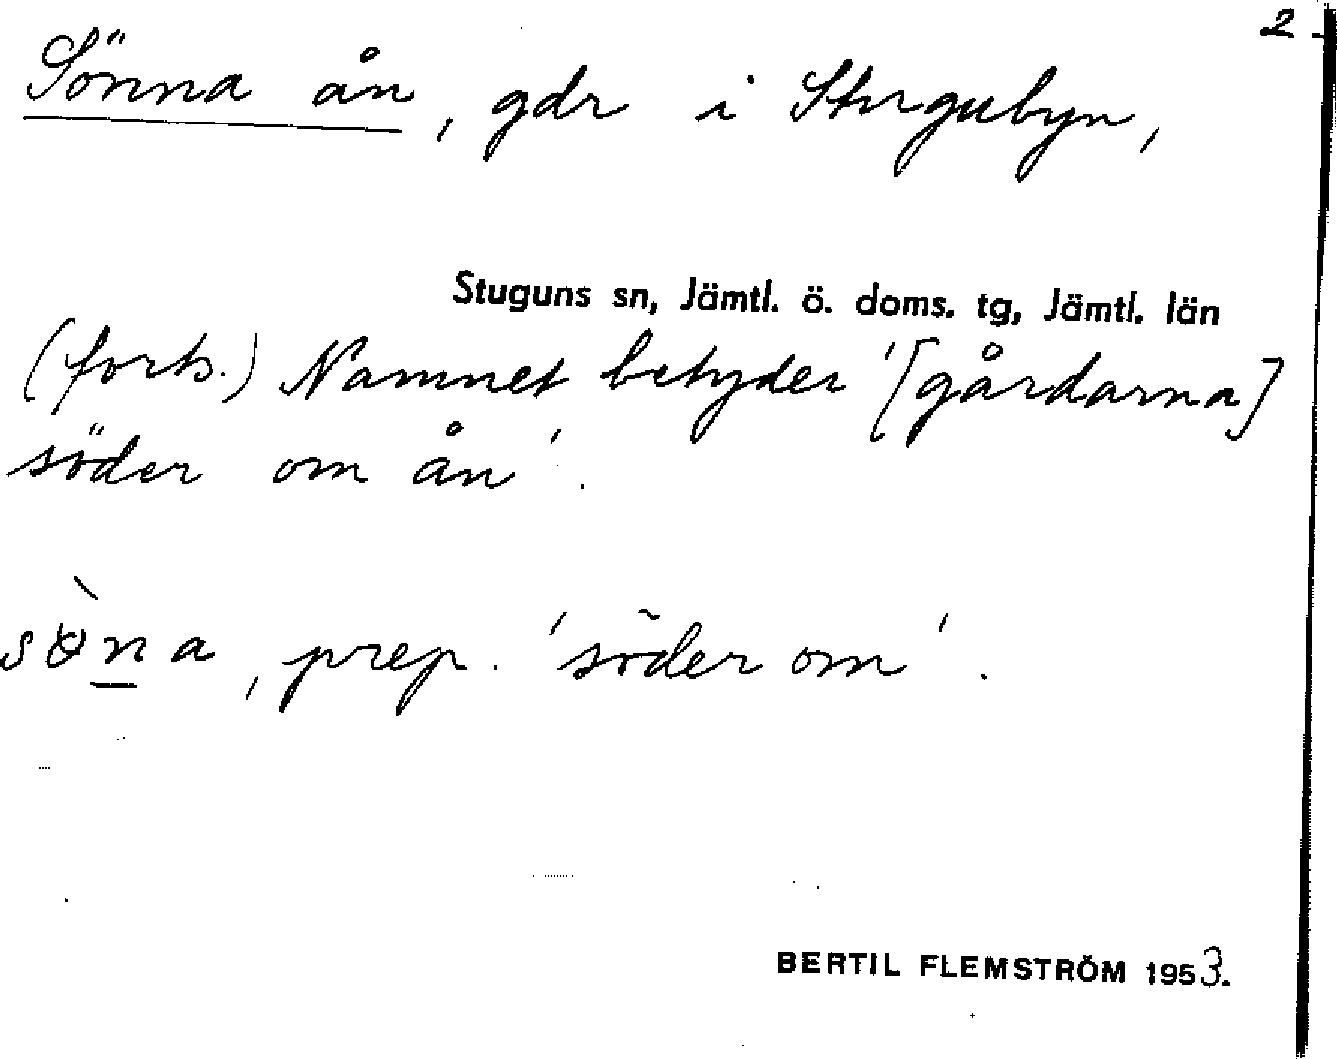 2
Sönna ån, gdr i Stugubyn,
Stuguns sn, Jämtl. ö. doms. tg, Jämtl. län
(forts.) Namnet betyder '[gårdarna]
söder om ån'.
sèna, prep. 'söder om'.
BERTIL FLEMSTRÖM 1953.